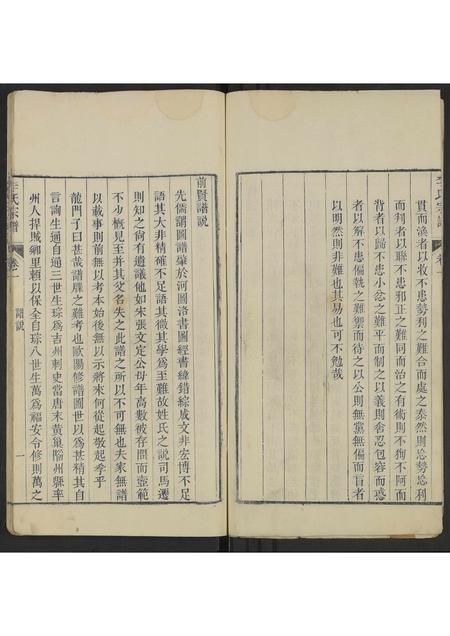 李氏宗譜
卷一
貫而渙者以收不患勢利之難合而處之泰然則忘勢忘利
而判者以聯不患邪正之難同而治之有術則不狥不阿而
背者以歸不患小忿之難平而制之以義則舍忍包容而惑
者以解不患偏執之難禦而待之以公則無黨無偏而盲者
以明然則非難也其易也可不勉哉
前賢譜說
先儒謂圖譜肇於河圖洛書圖經書緯錯綜成文非宏博不足
語其大非精確不足語其微其學為至難故姓氏之說司馬遷
則知之尚有遺議他如宋張文定公母年高數被存問而壺範
不少概見至并其父名失之此譜之所以不可無也夫家無譜
以載事則前無以考本始後無以示將來何從起敬起孝乎
龍門子曰甚哉譜牒之難考也歐陽修譜圖世以為甚精其自
言詢生通自通三世生琮為吉州刺史當唐末黃巢陷州縣率
州人捍賊鄉里賴以保全自琮八世生萬為福安令修則萬之
李氏宗譜
卷一
譜說
一